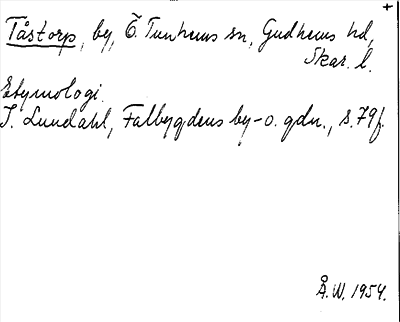 Tåstorp, by, Ö. Tunhems sn, Gudhems hd,
Skar. l.
Etymologi.
I. Lundahl, Falbygdens by- o. gdn., s. 79f.
Å. W. 1954.